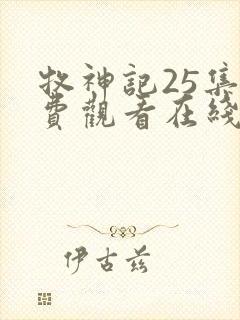 牧神記25集
費觀看在綫
伊古兹